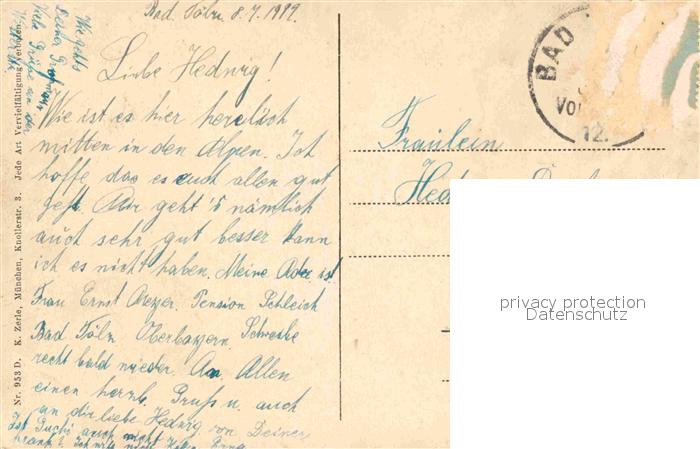 Bad Tölz 8.7.19
Liebe Hedwig!
Wie ist es hier herrlich
mitten in den Alpen. Ich
hoffe das es euch allen gut
geht. Mir geht's nämlich
auch sehr gut besser kann
ich es nicht haben. Meine Adr. ist
Frau Ernst Meyer. Pension Schleich
Bad Tölz Oberbayern. Schreibe
recht bald wieder. An Allen
einen herzl. Gruß u. auch
an dir liebe Hedwig von Deiner
Wie gehts
Deiner
Viele Grüße an
Nr. 953 D. K. Zerle, München, Knollerstr. 3. Jede Art Vervielfältigung verboten.
BAD
Vo
12.
Fräulein
Hed
privacy protection
Datenschutz